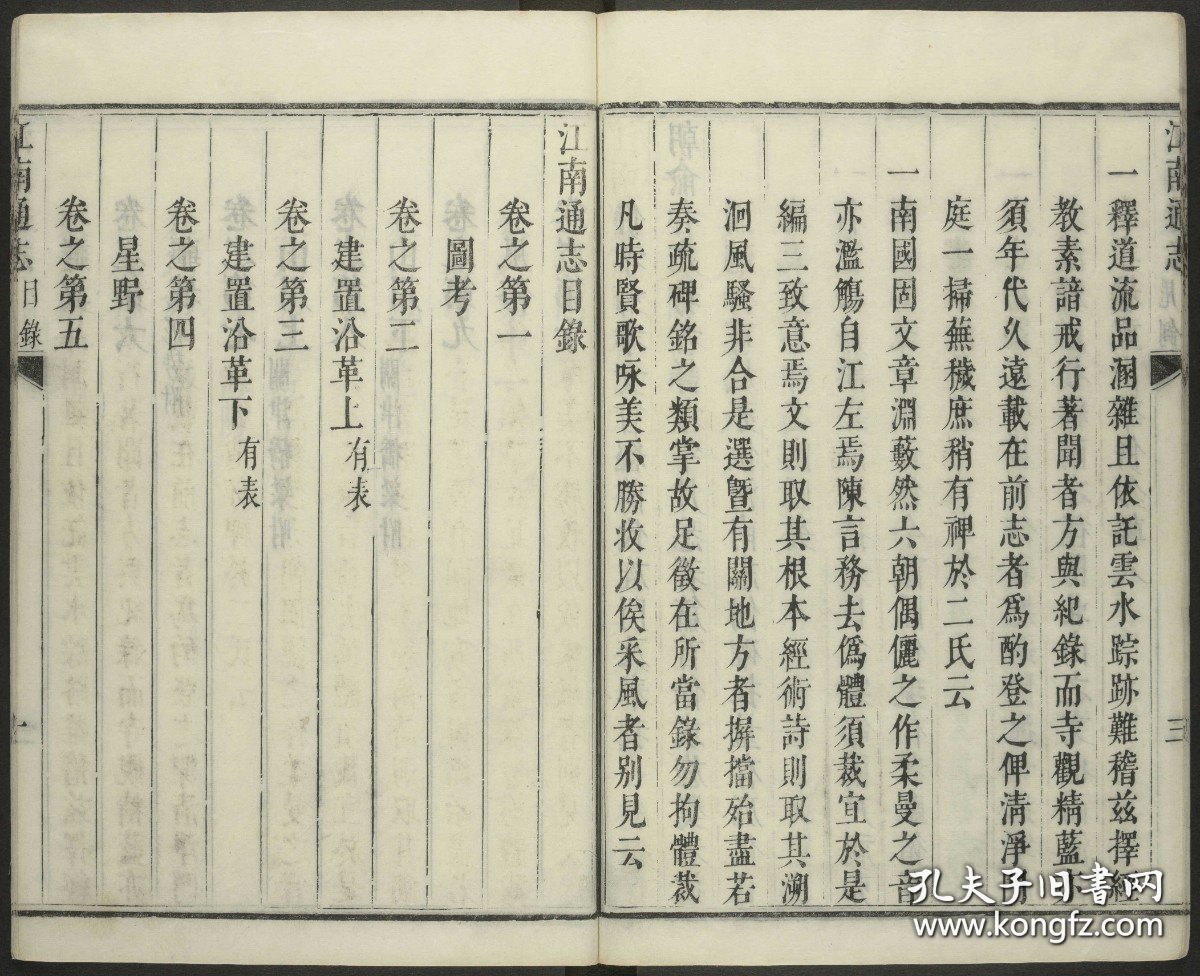 江南通志 凡例 三
一釋道流品溷雜且依託雲水踪跡難稽兹擇經
教素諳戒行著聞者方與紀錄而寺觀精藍不
須年代久遠載在前志者爲酌登之俾清淨
庭一掃蕪穢庶稍有裨於二氏云
一南國固文章淵藪然六朝偶儷之作柔曼之音
亦濫觴自江左焉陳言務去僞體須裁宜於是
編三致意焉文則取其根本經術詩則取其溯
洄風騷非合是選暨有關地方者摒擋殆盡若
奏疏碑銘之類掌故足徵在所當錄勿拘體裁
凡時賢歌咏美不勝收以俟采風者别見云
江南通志目錄
卷之第一
圖考
卷之第二
建置沿革上 有表
卷之第三
建置沿革下 有表
卷之第四
星野
卷之第五
江南通志 目錄
孔夫子旧书网
www.kongfz.com